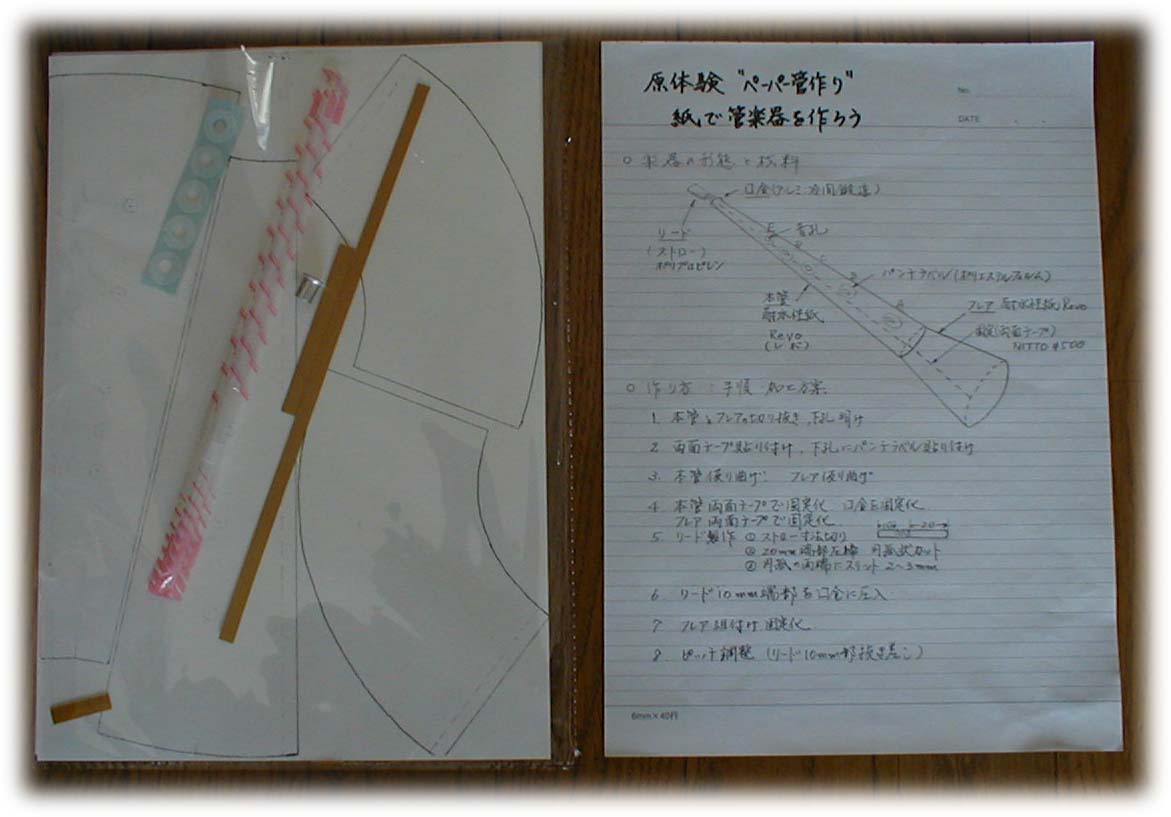 原体験 "ペーパー管作り"
紙で管楽器を作ろう
No.
DATE . .
○ 楽器の形態と材料
口金(アルミ冷間鍛造)
リード
(ストロー)
ポリプロピレン
音孔
パンチラベル(ポリエステルフィルム)
本管
耐水性紙
Revo
(レボ)
フレア 耐水性紙 Revo
固定(両面テープ)
NITTO #500
○ 作り方 : 手順 加工方案
1. 本管とフレアの切り抜き、下孔明け
2. 両面テープ貼り付け、下孔にパンチラベル貼り付け
3. 本管仮り曲げ フレア仮り曲げ
4 本管両面テープで固定化 口金を固定化
フレア両面テープで固定化
5. リード製作 ① ストロー寸法切り
20
② 20mm端部圧縮 円弧状カット
③ 円弧の両端にスリット 2~3mm
6 リード10mm端部を口金に圧入
7 フレア組付け 固定化
8. ピッチ調整 (リード10mm部抜き差し)
6mm×40行